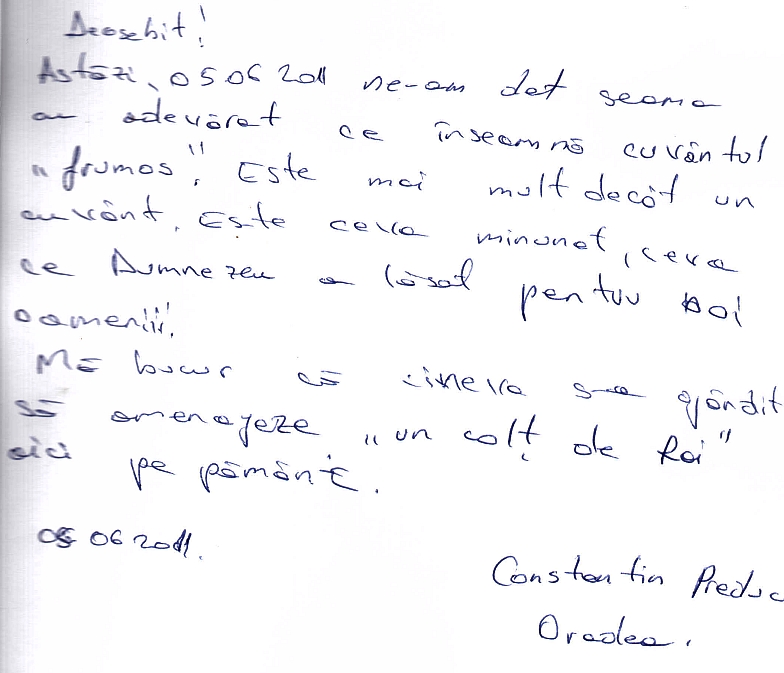 Deosebit!
Astăzi, 05 06 2011 ne-am dat seama
cu adevărat ce înseamnă cuvântul
„frumos”. Este mai mult decât un
cuvânt. Este ceva minunat, ceva
ce Dumnezeu a lăsat pentru noi
oamenii!
Mă bucur că cineva s-a gândit
să amenajeze „un colț de Rai”
aici pe pământ.
05 06 2011.
Constantin
Oradea.